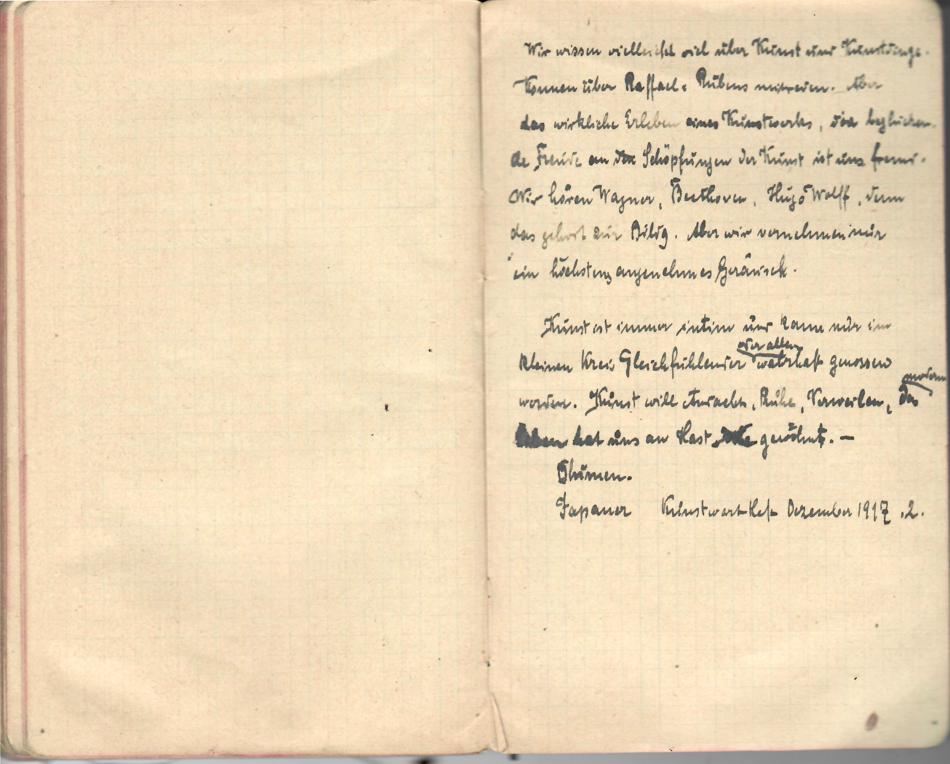 Wir wissen vielleicht viel über Kunst und Kunstdinge.
Können über Raffael & Rubens mitreden. Aber
das wirkliche Erleben eines Kunstwerks, die beglücken-
de Freude an den Schöpfungen der Kunst ist uns fremd.
Wir hören Wagner, Beethoven, Hugo Wolff, denn
das gehört zur Bildg. Aber wir vernehmen nur
ein höchstens angenehmes Geräusch.
Kunst ist immer intim und kann nur im
kleinen Kreis Gleichfühlender oder allein wahrhaft genossen
werden. Kunst will Andacht, Ruhe, Verweilen, das moderne
Leben hat uns an Hast gewöhnt. —
Blumen.
Japaner Kunstwart Heft Dezember 1917 .2.